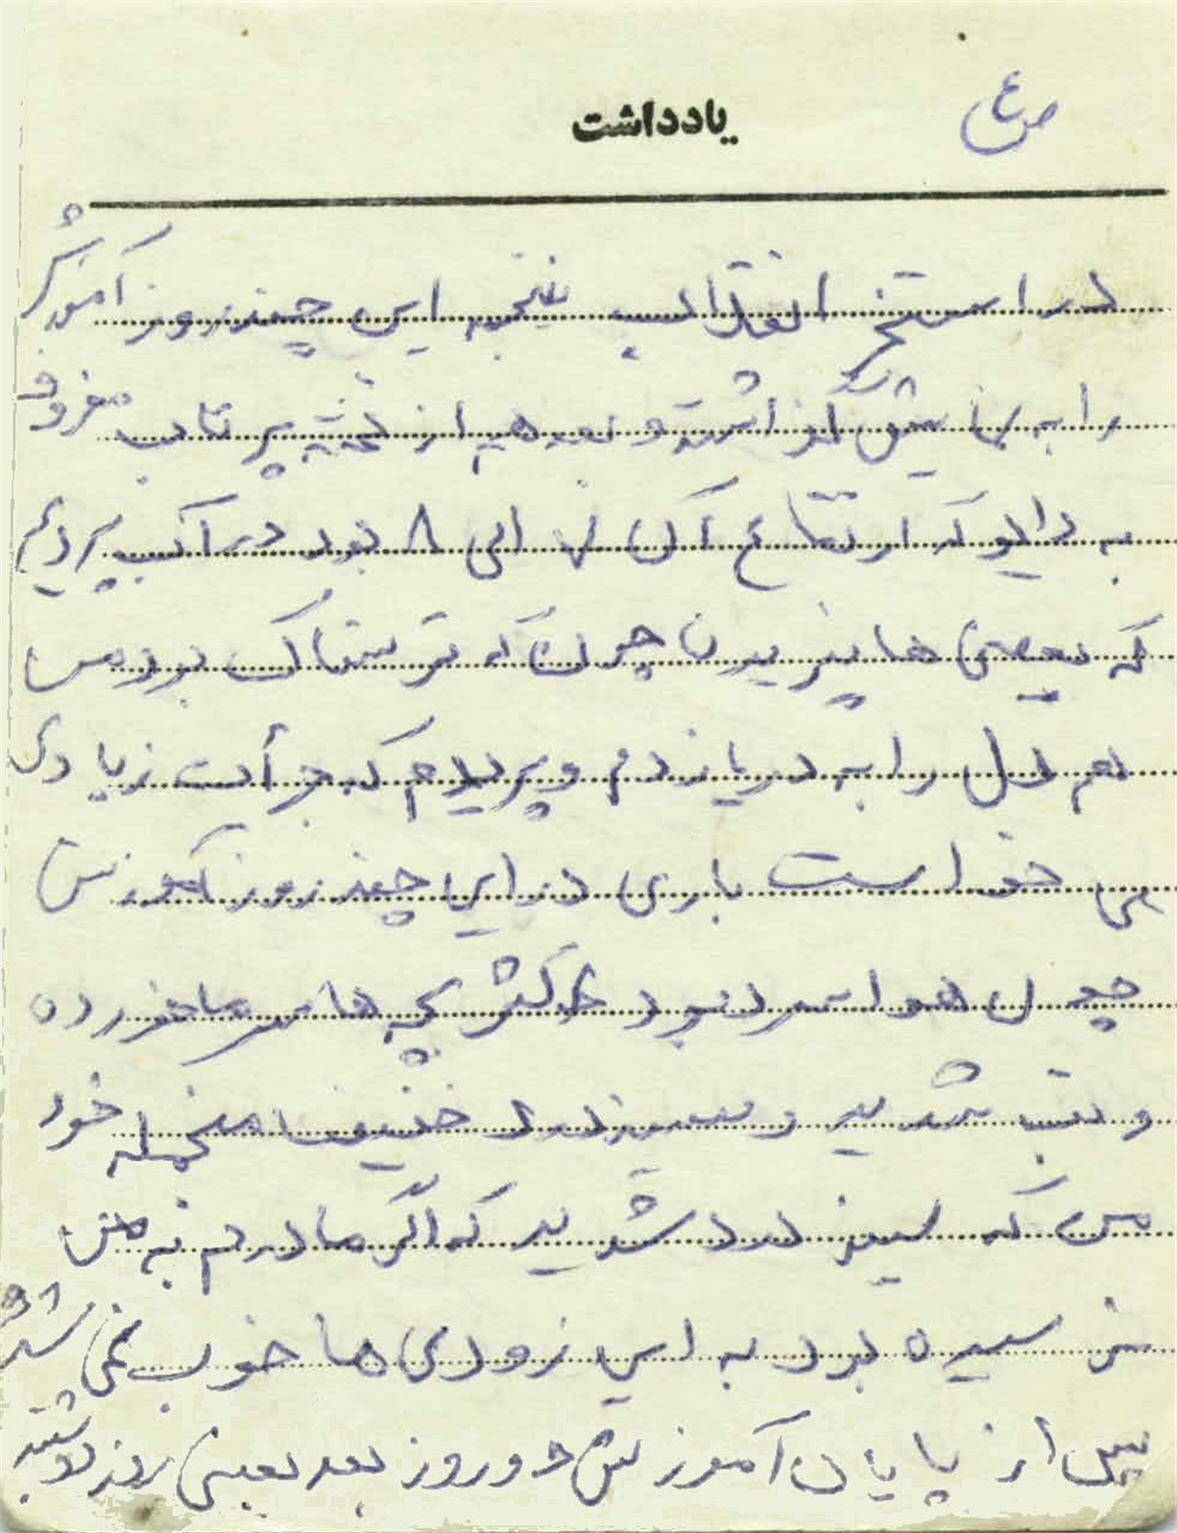 یادداشت
ص ۴
در استخر انقلاب نتیجه این چند روز آموزش
را به نمایش گذاشته و بعد هم از تخته پرتاب معروف
به دایو که ارتفاع آن ۷ الی ۸ بود در آب پریدیم
که بعضی ها نپریدن چون که ترسناک بود من
هم دل را به دریا زدم و پریدم که جرأت زیادی
می خواست باری در این چند روز آموزش
چون هوا سرد بود اکثر بچه ها سرما خورده
و تب شدید و سینه درد خفیف منجمله خود
من که سینه درد شدید که اگر مادرم به من
نرسیده بود به این زودی ها خوب نمی شد
پس از پایان آموزش دو روز بعد یعنی روز دوشنبه